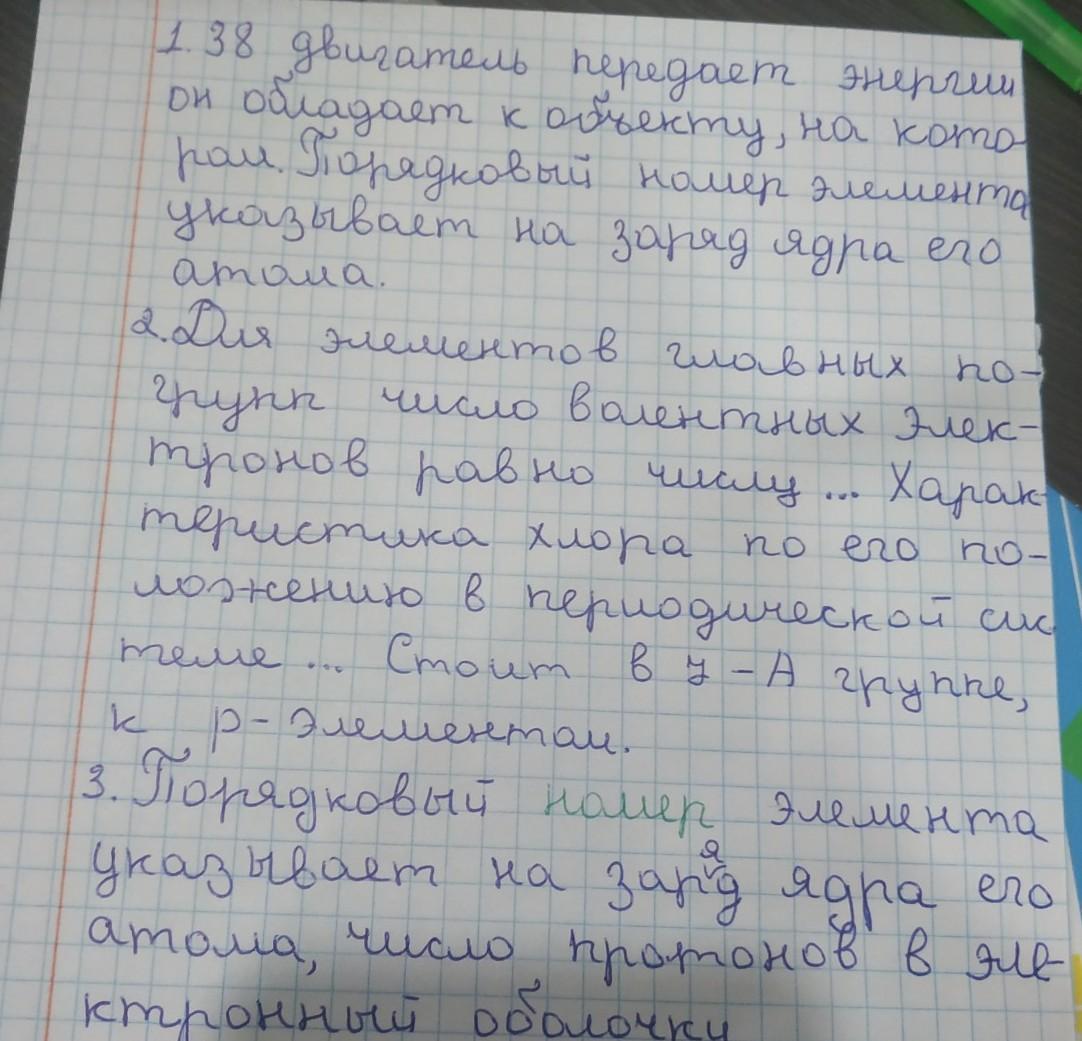 1.38 двигатель передает энергии
он обладает к объекту, на кото-
ром. Порядковый номер элемента
указывает на заряд ядра его
атома.
2. Для элементов главных по-
групп число валентных элек-
тронов равно числу ... Харак-
теристика хлора по его по-
ложению в периодической сис
теме ... Стоит в 7-А группе,
к р-элементам.
3. Порядковый номер элемента
указывает на заряд ядра его
атома, число протонов в эле-
ктронный оболочки